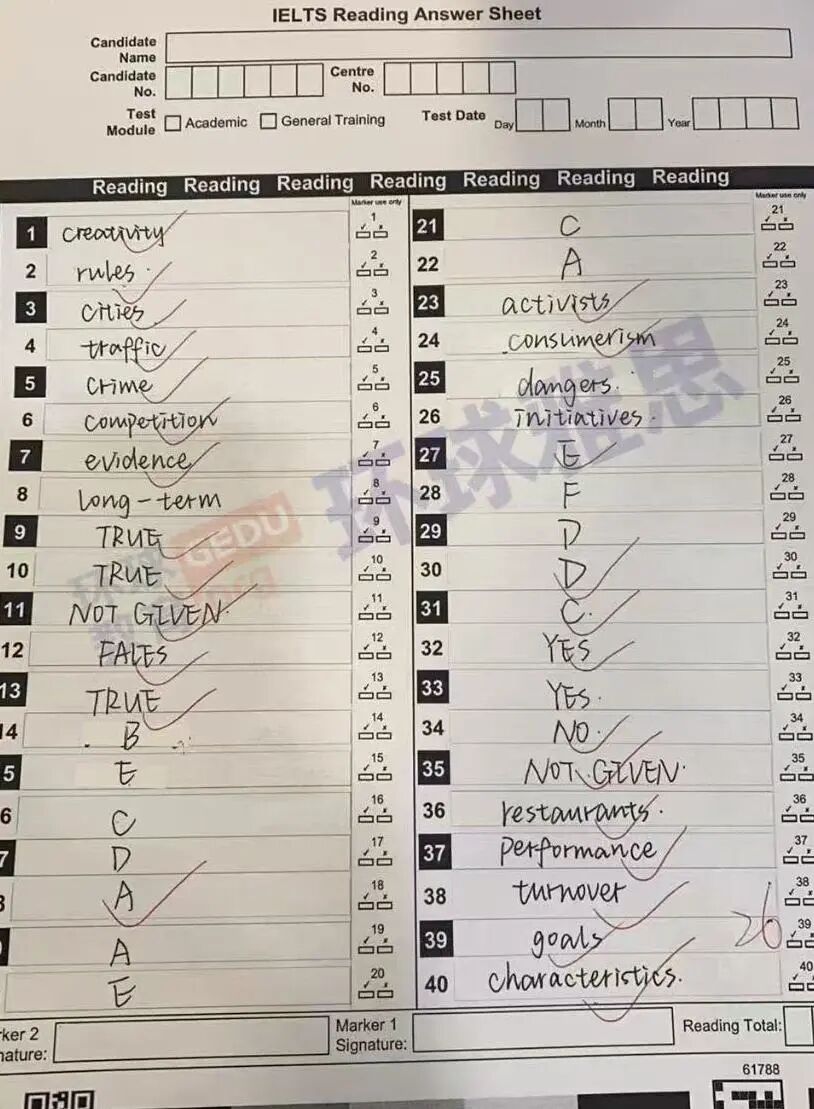 IELTS Reading Answer Sheet
Candidate Name
Candidate No.
Centre No.
Test Module
Academic
General Training
Test Date
Day
Month
Year
Reading Reading Reading Reading Reading Reading Reading
Marker use only
Marker use only
1 creativity 1
2 rules. 2
3 cities 3
4 traffic 4
5 crime 5
6 competition 6
7 evidence 7
8 long-term 8
9 TRUE 9
10 TRUE 10
11 NOT GIVEN. 11
12 FALES 12
13 TRUE 13
14 B 14
5 E 15
6 C 16
7 D 17
A 18
A 19
E 20
21 C 21
22 A 22
23 activists 23
24 consumerism 24
25 dangers. 25
26 initiatives. 26
27 E 27
28 F 28
29 D 29
30 D 30
31 C. 31
32 YES 32
33 YES. 33
34 NO. 34
35 NOT GIVEN. 35
36 restaurants. 36
37 performance 37
38 turnover 38
39 goals 39
40 characteristics. 40
26
环球雅思
环球 GEDU
rker 2
nature:
Marker 1
Signature:
Reading Total:
61788